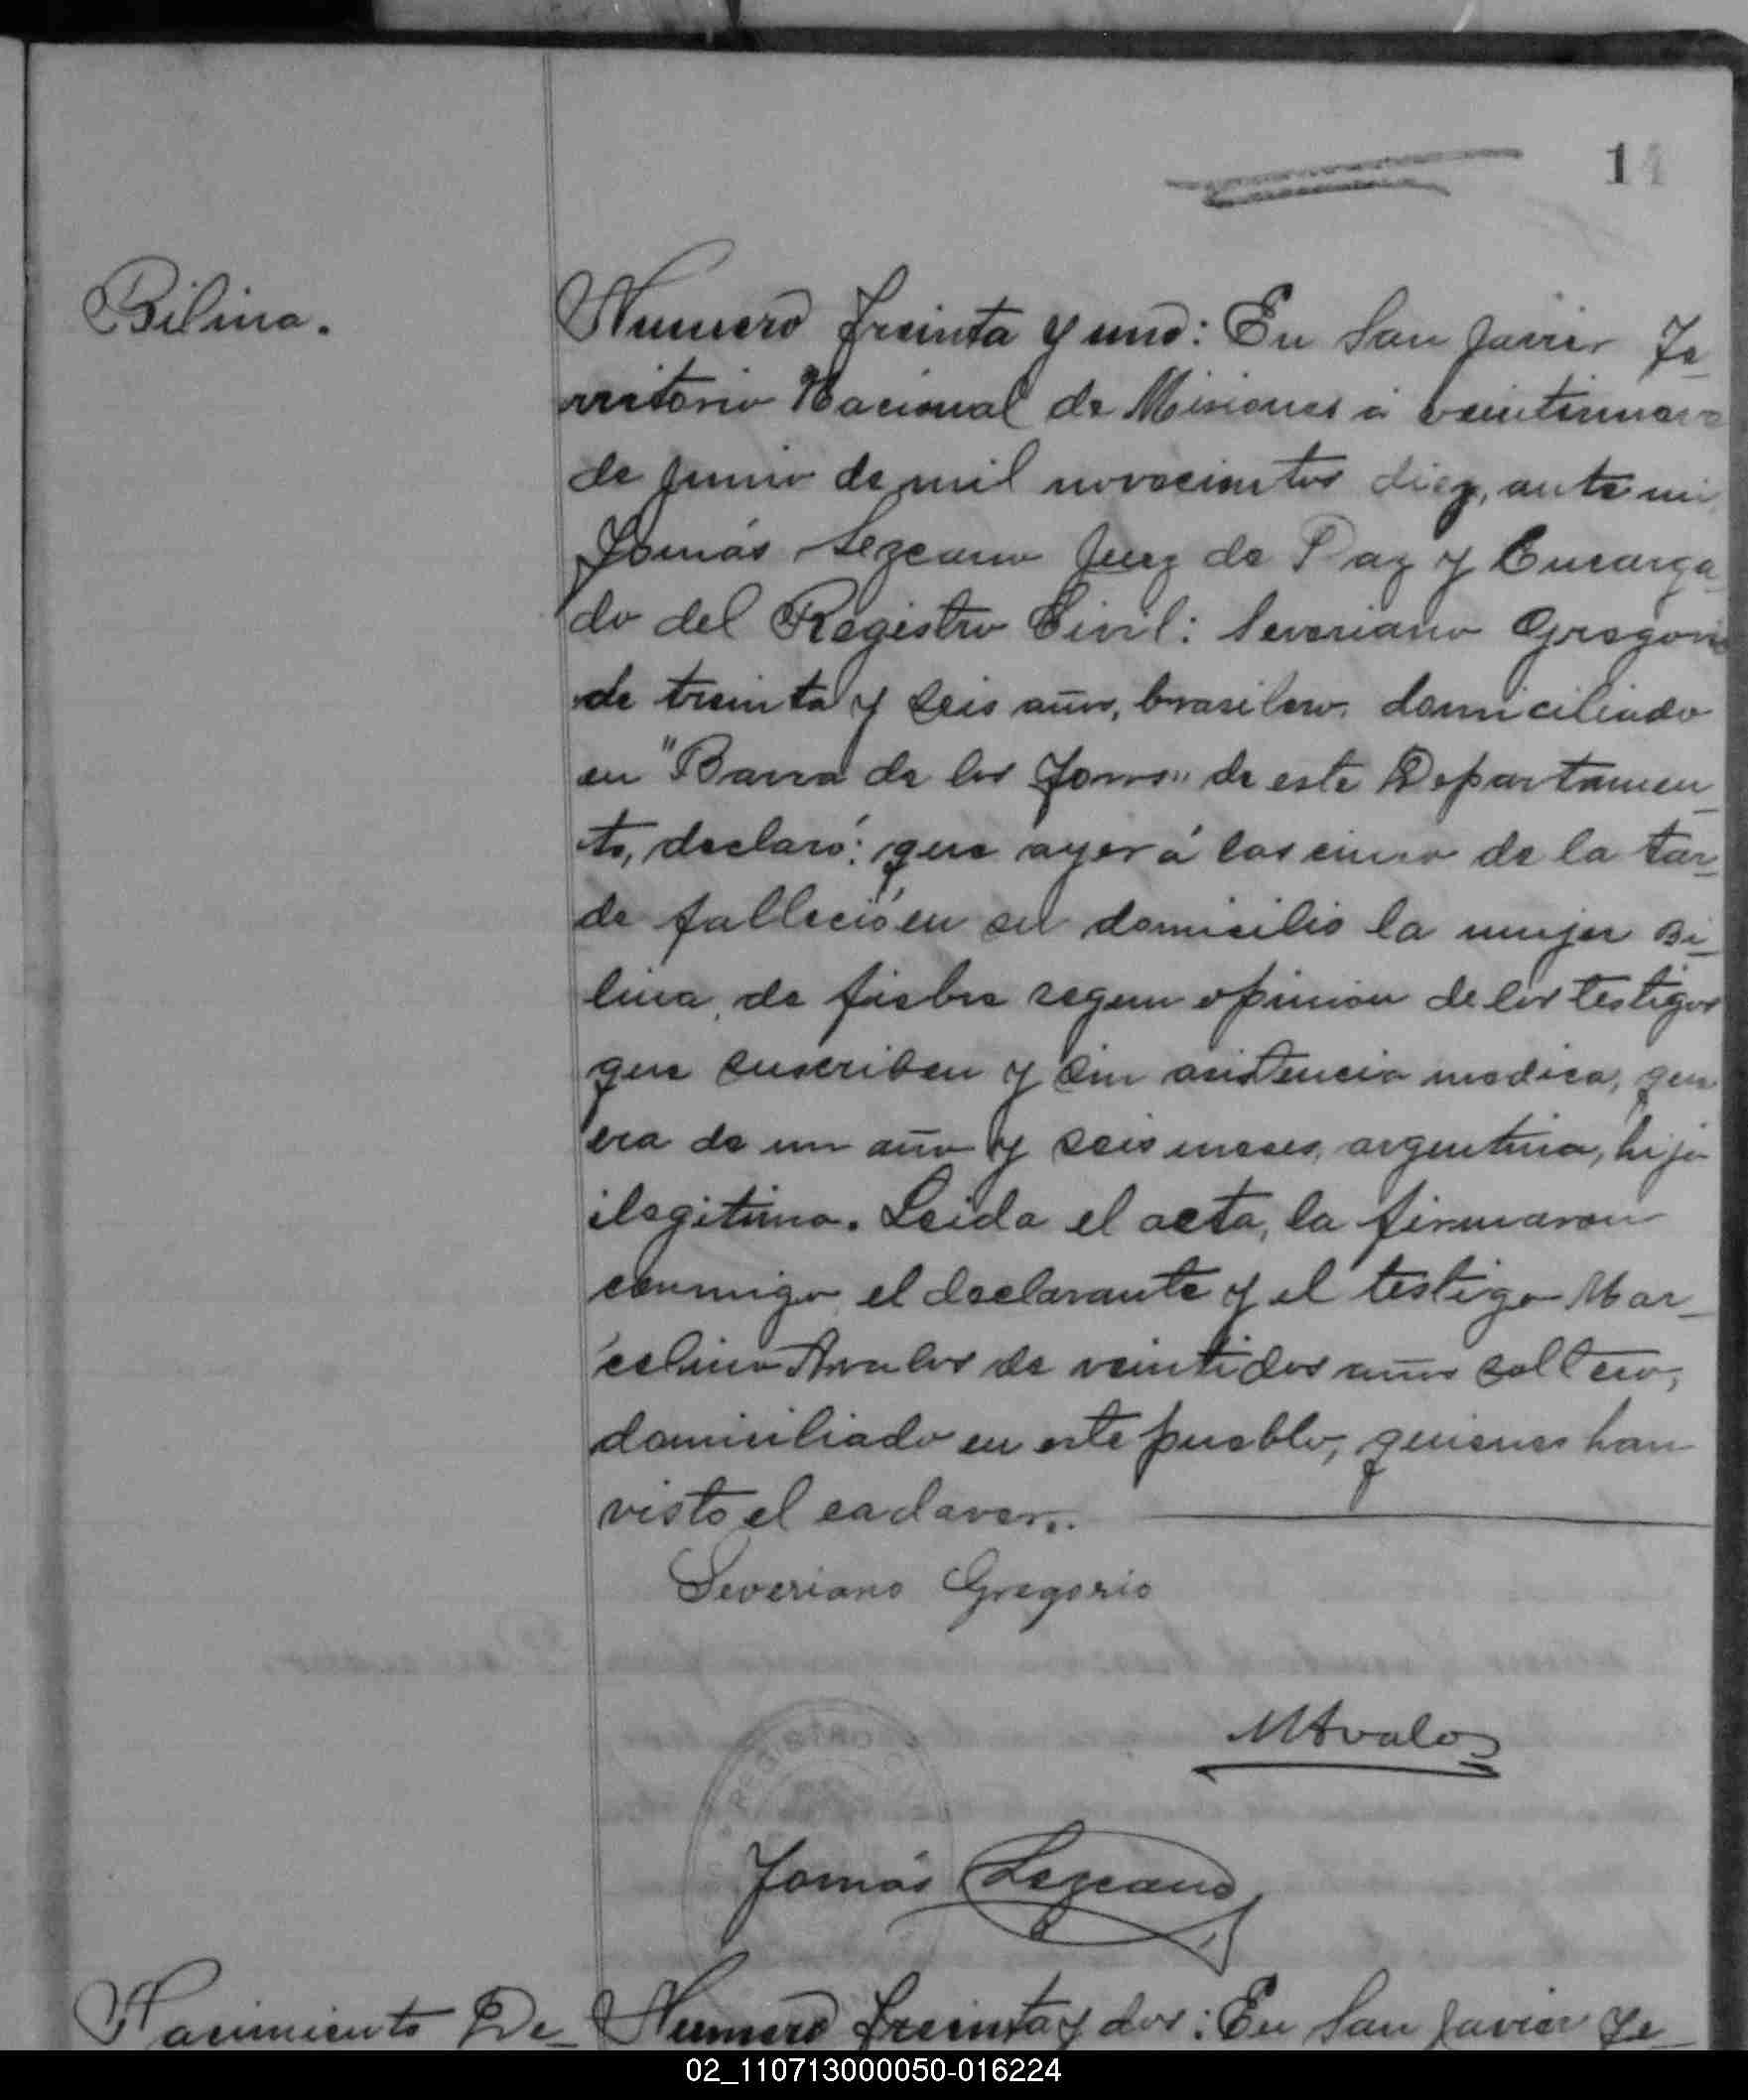 14
Bilina.
Numero treinta y uno: En San Javier Te_
rritorio Nacional de Misiones á veintinueve
de Junio de mil novecientos diez, ante mi
Tomás Lezcano Juez de Paz y Encarga_
do del Registro Civil: Severiano Gregorio
de treinta y seis años, brasilero, domiciliado
en "Barra de los Toros" de este Departamen_
to, declaró: que ayer á las cinco de la tar_
de falleció en su domicilio la mujer Bi_
lina, de fiebre segun opinion de los testigos
que suscriben y sin asistencia medica, que
era de un año y seis meses, argentina, hija
ilegitima. Leida el acta, la firmaron
conmigo el declarante y el testigo Mar_
celino Avalos de veintidos años soltero,
domiciliado en este pueblo, quienes han
visto el cadaver..
Severiano Gregorio
MAvalos
Tomás Lezcano
Nacimiento De_
Numero treinta y dos: En San Javier Te_
02_110713000050-016224